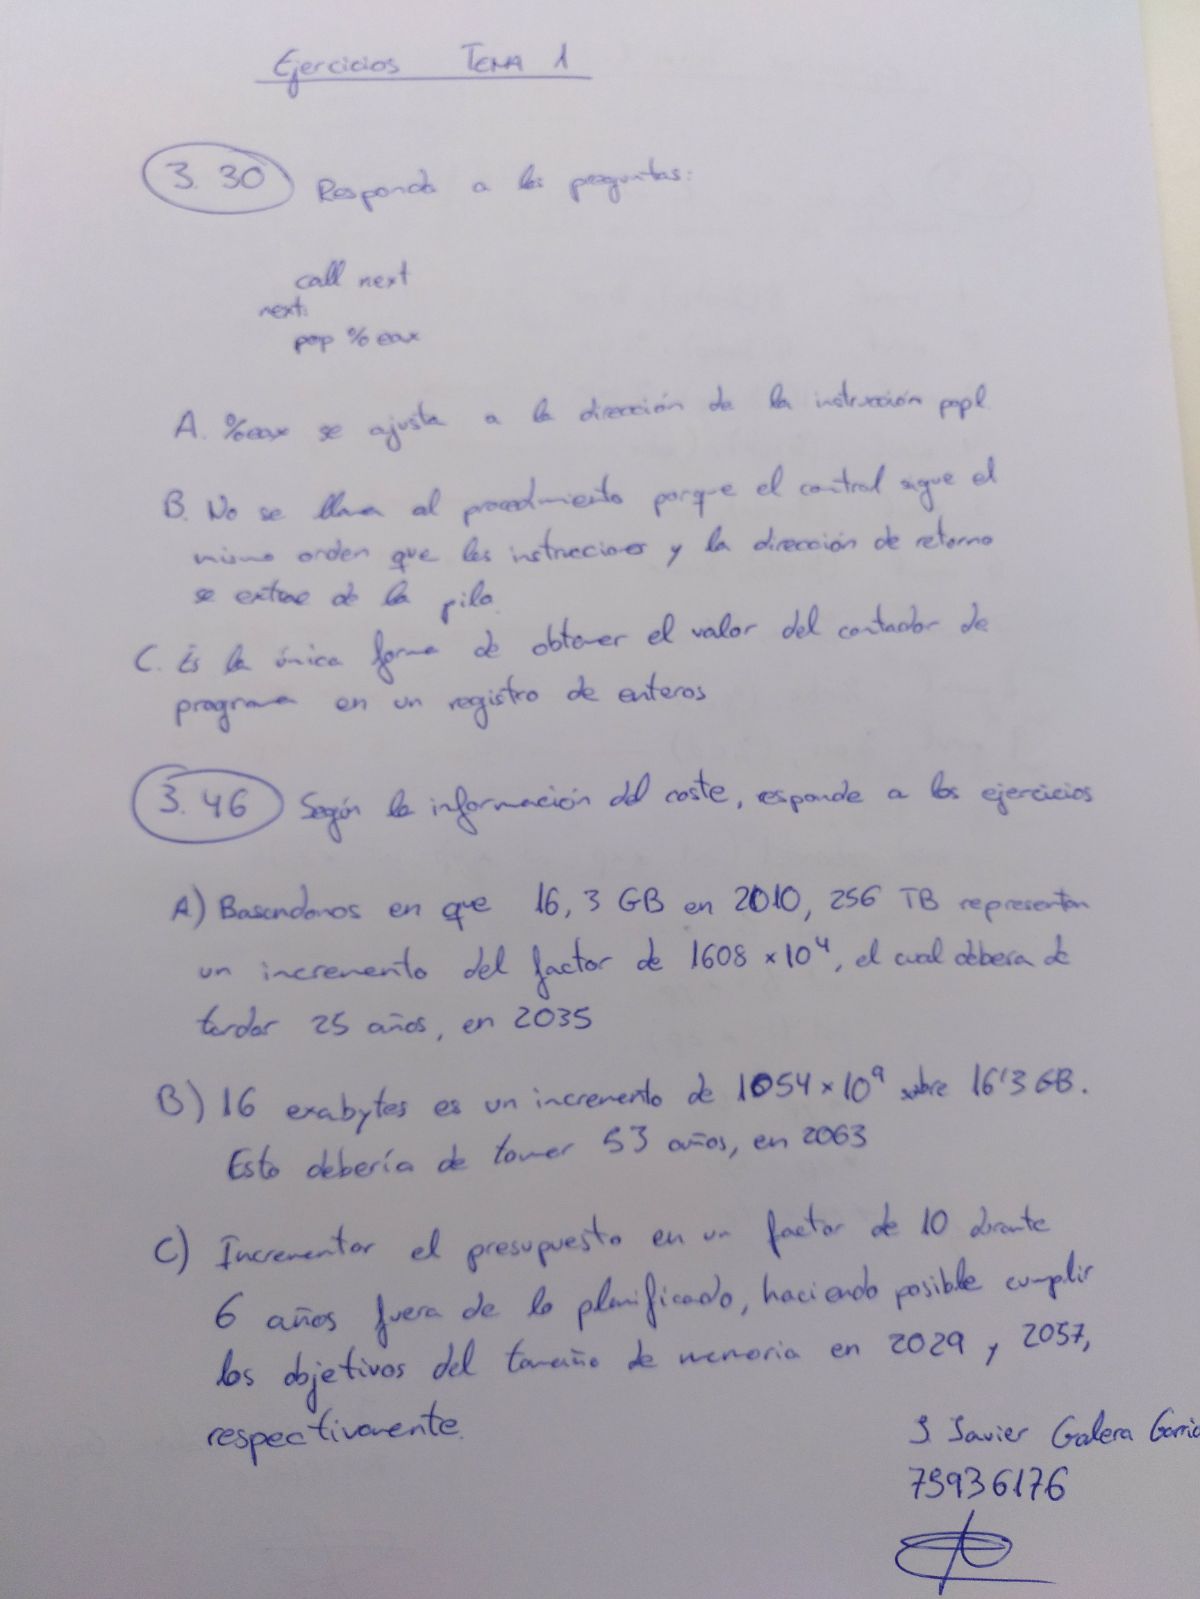 Ejercicios TEMA 1
3.30 Responda a las preguntas:
call next
next:
pop %eax
A. %eax se ajusta a la dirección de la instrucción popl
B. No se llama al procedimiento porque el control sigue el
mismo orden que las instrucciones y la dirección de retorno
se extrae de la pila.
C. Es la única forma de obtener el valor del contador de
programa en un registro de enteros
3.46 Según la información del coste, responde a los ejercicios
A) Basandonos en que 16,3 GB en 2010, 256 TB representan
un incremento del factor de 1608 × 10⁴, el cual debera de
tardar 25 años, en 2035
B) 16 exabytes es un incremento de 1054 × 10⁹ sobre 16'3 GB.
Esto debería de tomar 53 años, en 2063
C) Incrementar el presupuesto en un factor de 10 durante
6 años fuera de lo planificado, haciendo posible cumplir
los objetivos del tamaño de memoria en 2029 y 2057,
respectivamente.
J. Javier Galera Garrid
75936176